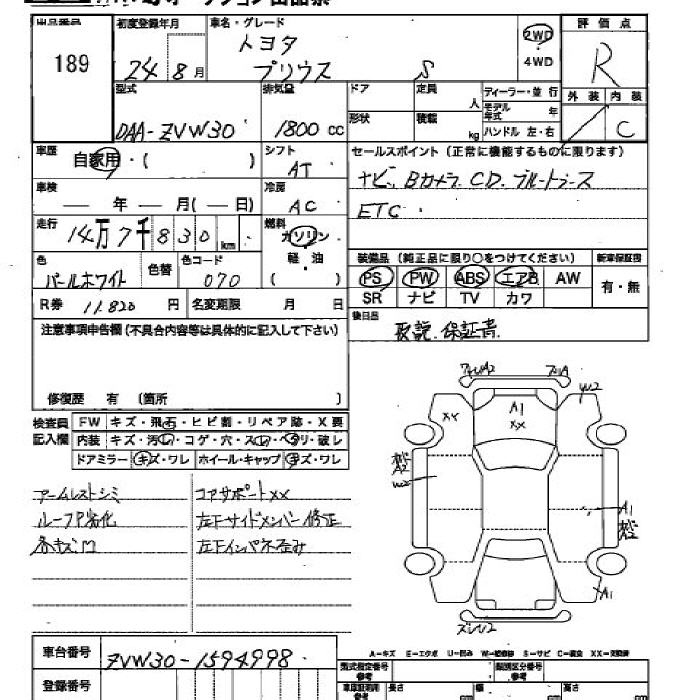 出品番号 初度登録年月 車名・グレード 評価点
189 24年8月 トヨタ プリウス S 2WD 4WD R
型式 排気量 ドア 定員 人 ディーラー・並行 外装 内装
DAA-ZVW30 1800cc 形状 積載 kg モデル年式 年 ハンドル 左・右 C
車歴 自家用・( ) シフト AT セールスポイント(正常に機能するものに限ります)
車検 — 年 — 月(— 日) 冷房 AC ナビ、Bカメラ、CD、ブルートゥース
ETC
走行 14万7千830km 燃料 ガソリン 軽・油 ( )
装備品(純正品に限り○をつけてください) 新車保証書
色 パールホワイト 色替 色コード 070 PS PW ABS エアB AW 有・無
R券 11.820円 名変期限 月 日 SR ナビ TV カワ
注意事項申告欄(不具合内容等は具体的に記入して下さい) 後日品 取説.保証書
修復歴 有 (箇所 )
検査員記入欄 FW キズ・飛石・ヒビ割・リペア跡・X要
内装 キズ・汚レ・コゲ・穴・スレ・ヘタリ・破レ
ドアミラー キズ・ワレ ホイール・キャップ キズ・ワレ
アームレストシミ コアサポートXX
ルーフP劣化 左Fサイドメンバー修正
各キズ有 左Fインパネ歪み
A1
XX
XX
W2
A2
W2
A1
A1
A—キズ E—エクボ U—凹み W—補修跡 S—サビ C—腐食 XX—交換済
車台番号 ZVW30-1594998 型式指定番号 参考 類別区分番号 参考
登録番号 車庫証明用 参考 長さ cm 幅 cm 高さ cm